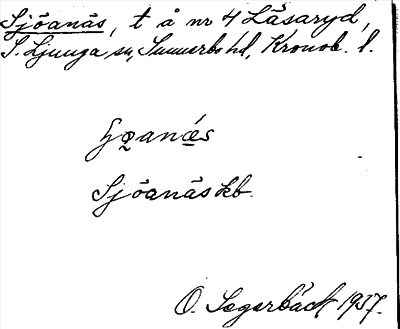 Sjöanäs, t å nr 4 Låsaryd,
S. Ljunga sn, Sunnerbo hd, Kronob. l.
Sjöanäs kb.
O. Segerbäck 1937.